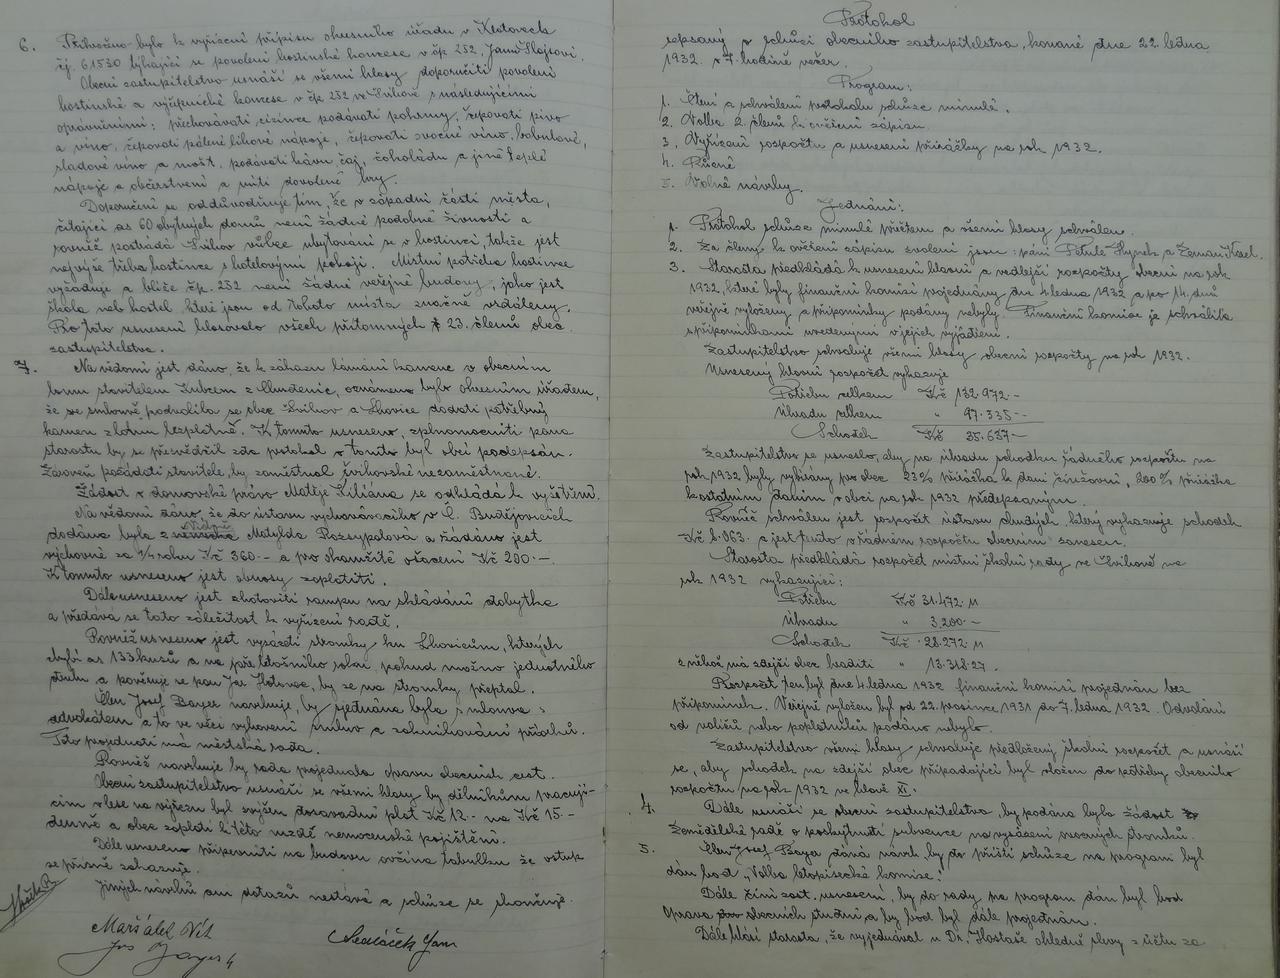 6. Přikročeno bylo k vyřízení přípisu okresního úřadu v Klatovech
čj. 61530 týkající se povolení hostinské koncese v čp. 252 Janu Hajšovi.
Obecní zastupitelstvo usnáší se všemi hlasy doporučiti povolení
hostinské a výčepnické koncese v čp. 252 ve Švihově s následujícími
oprávněními: přechovávati cizince podávati pokrmy, čepovati pivo
a víno, čepovati pálené lihové nápoje, čepovati ovocné víno,
sladové víno a mošt, podávati kávu čaj, čokoládu a jiné teplé
nápoje a občerstvení a míti dovolené hry.
Doporučení se odůvodňuje tím, že v západní části města,
čítající as 60 obytných domů není žádné podobné živnosti a
rovněž postrádá Švihov vůbec ubytování se v hostinci, takže jest
nejvýše třeba hostince s hotelovými pokoji. Místní potřeba hostince
vyžaduje a blíže čp. 252 není žádné veřejné budovy, jako jest
škola neb kostel, které jsou od tohoto místa značně vzdáleny.
Pro toto usnesení hlasovalo všech přítomných 23. členů obec.
zastupitelstva.
7. Na vědomí jest dáno, že k zákazu lámání kamene v obecním
lomu stavitelem z oznámeno bylo okresním úřadem,
že se smlouvě podvolila se obec Švihov a Lhovice dodati potřebný
kamen z lomu bezplatně. K tomuto usneseno, zplnomocniti pana
starostu by se přesvědčil zda protokol o tomto byl obcí podepsán.
Zároveň požádati stavitele, by zaměstnal švihovské nezaměstnané.
Žádost o domovské právo Matěje Kiliána se odkládá k vyšetření.
Na vědomí dáno, že do ústavu vychovávacího v Č. Budějovicích
dodána byla z Matylda Rozsypalová a žádáno jest
výchovné za 1/2 roku Kč 360.- a pro okamžité ošacení Kč 200.-.
K tomuto usneseno jest obnosy zaplatiti.
Dále usneseno jest zhotoviti rampu na skládání dobytka
a předává se tato záležitost k vyřízení radě.
Rovněž usneseno jest vysázeti stromky ku Lhovicům, kterých
chybí as 133 kusů a na pře letošního roku, pokud možno jednotného
druhu a pověřuje se pan Jos. by se na stromky přeptal.
Člen Josef Bayer navrhuje, by sjednána byla smlouva s
advokátem a to ve věci vyhovení smluv a zaknihování příkopů.
Toto projednati má městská rada.
Rovněž navrhuje by rada projednala opravu obecních cest.
Obecní zastupitelstvo usnáší se všemi hlasy by dělníkům pracují-
cím v lese na výřezu byl zvýšen dosavadní plat Kč 12.- na Kč 15.-
denně a obec zaplatí k této mzdě nemocenské pojištění.
Dále usneseno připevniti na budovu ovčína tabulku že vstup
se přísně zakazuje.
Jiných návrhů ani dotazů nestává a schůze se skončuje.
Maršálek Vít
Jos Bayer
Sedláček Jan
Protokol
sepsaný o schůzi obecního zastupitelstva, konané dne 22. ledna
1932 v 7. hodině večer.
Program:
1. Čtení a schválení protokolu schůze minulé.
2. Volba 2. členů k ověření zápisu.
3. Vyřízení rozpočtu a usnesení přirážky na rok 1932.
4. Různé
5. Volné návrhy.
Jednání:
1. Protokol schůze minulé přečten a všemi hlasy schválen.
2. Za členy k ověření zápisu zvoleni jsou: páni Hynek a Zeman Karel.
3. Starosta předkládá k usnesení hlavní a vedlejší rozpočty obecní na rok
1932, které byly finanční komisí projednány dne 4. ledna 1932 a po 14. dnů
veřejně vyloženy a připomínky podány nebyly. Finanční komise je schválila
s připomínkami uvedenými v jejich vyjádření.
Zastupitelstvo schvaluje všemi hlasy obecní rozpočty na rok 1932.
Usnesený hlavní rozpočet vykazuje
Potřebu celkem Kč 132.972.-
Úhradu celkem " 97.335.-
Schodek Kč 35.637.-
Zastupitelstvo se usneslo, aby na úhradu schodku řádného rozpočtu na
rok 1932 byly vybírány pro obec 23% přirážka k dani činžovní, 200% přirážka
k ostatním daním v obci na rok 1932 předepsaným.
Rovněž schválen jest rozpočet ústavu chudých, který vykazuje schodek
Kč 6.063. a jest tento v řádném rozpočtu obecním zanesen.
Starosta předkládá rozpočet místní školní rady ve Švihově na
rok 1932 vykazující:
Potřebu Kč 31.472.11
Úhradu " 3.200.-
Schodek Kč 28.272.11
z něhož má zdejší obec hraditi " 13.318.27.
Rozpočet ten byl dne 4. ledna 1932 finanční komisí projednán bez
připomínek. Veřejně vyložen byl od 22. prosince 1931 do 7. ledna 1932. Odvolání
od voličů nebo poplatníků podáno nebylo.
Zastupitelstvo všemi hlasy schvaluje předložený školní rozpočet a usnáší
se, aby schodek na zdejší obec připadající byl vložen do potřeby obecního
rozpočtu na rok 1932 ve hlavě XI.
4. Dále usnáší se obecní zastupitelstvo, by podána byla žádost
Zemědělské radě o poskytnutí subvence na vysázení ovocných stromků.
5. Člen Josef Bayer dává návrh, by do příští schůze na program byl
dán bod "Volba letopisecké komise".
Dále činí zast. usnesení, by do rady na program dán byl bod
Oprava obecních studní a by bod byl dále projednán.
Dále hlásí starosta, že vyjednával u Dr. Hostaše ohledně slevy z účtu za